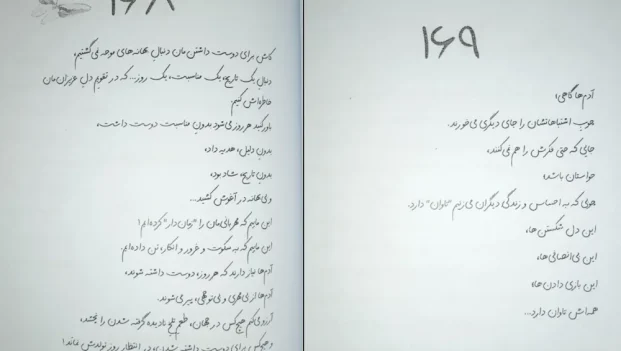 ۱۶۸
کاش برای دوست داشتن مان دنبال بهانه‌های موجه نمی‌گشتیم،
دنبال یک تاریخ، یک مناسبت، یک روز... که در تقویم دل عزیزان‌مان
خاطره‌اش کنیم
باور کنید هر روز می‌شود بدون مناسبت دوست داشت،
بدون دلیل، هدیه داد،
بدون تاریخ، شاد بود،
و بی‌بهانه در آغوش کشید...
این ماییم که مهربانی‌مان را "زمان‌دار" کرده‌ایم!
این ماییم که به سکوت و غرور و انکار، تن داده‌ایم.
آدم‌ها نیاز دارند که هر روز، دوست داشته شوند،
آدم‌ها از بی‌مهری و بی‌توجهی، پیر می‌شوند.
آرزو می‌کنم هیچ‌کس در جهان، طعم تلخ نادیده گرفته شدن را نچشد،
و هیچ‌کس برای دوست داشته شدن، در انتظار روز تولدش نماند!
۱۶۹
آدم‌ها گاهی،
چوب اشتباهاتشان را جای دیگری می‌خورند.
جایی که حتی فکرش را هم نمی‌کنند،
حواستان باشد،
چوبی که به احساس و زندگی دیگران می‌زنیم "تاوان" دارد.
این دل شکستن‌ها،
این بی‌انصافی‌ها،
این بازی دادن‌ها،
همه‌اش تاوان دارد...